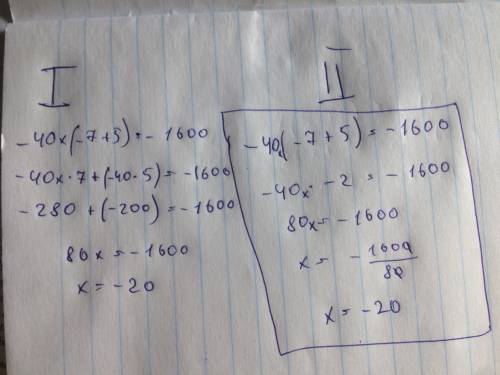 I
-40x(-7+5)=-1600
-40x·7+(-40·5)=-1600
-280+(-200)=-1600
80x=-1600
x=-20
II
-40x(-7+5)=-1600
-40x·-2=-1600
80x=-1600
x=-1600/80
x=-20